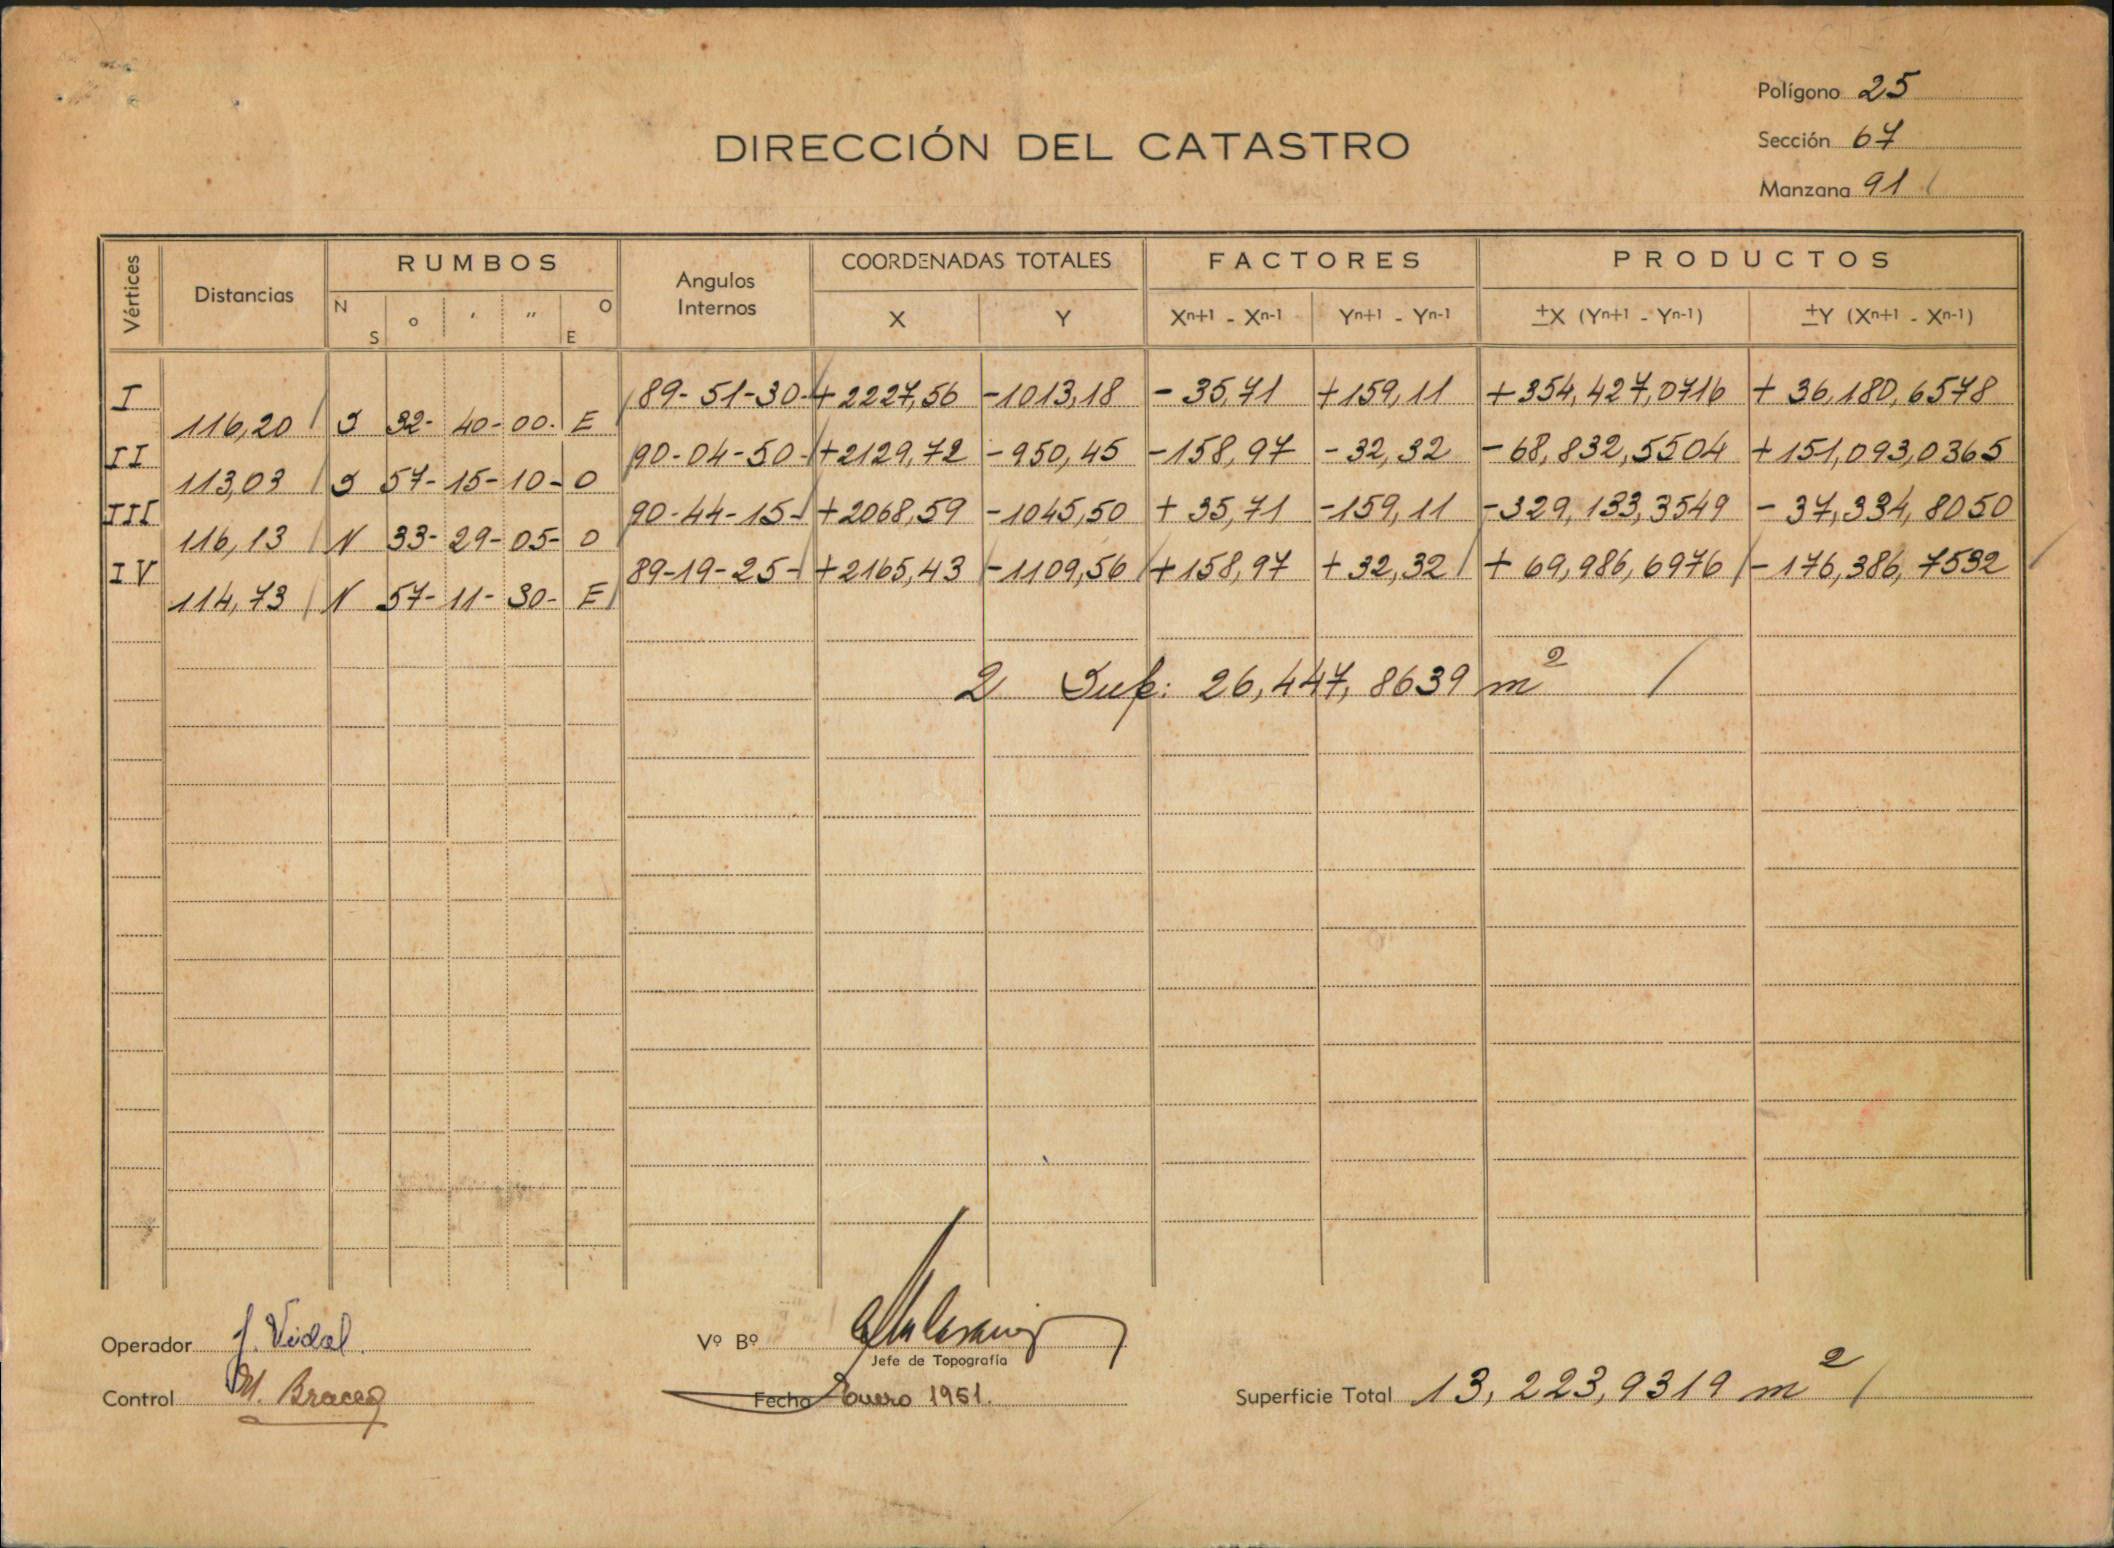 Polígono 25
DIRECCIÓN DEL CATASTRO
Sección 67
Manzana 91
Vértices Distancias RUMBOS Angulos Internos COORDENADAS TOTALES FACTORES PRODUCTOS
N S o ′ ″ O E X Y Xn+1 - Xn-1 Yn+1 - Yn-1 ±X (Yn+1 - Yn-1) ±Y (Xn+1 - Xn-1)
I 89-51-30- +2227,56 -1013,18 -35,71 +159,11 +354,427,0716 +36,180,6578
116,20 S 32- 40- 00- E
II 90-04-50- +2129,72 -950,45 -158,97 -32,32 -68,832,5504 +151,093,0365
113,03 S 57- 15- 10- O
III 90-44-15- +2068,59 -1045,50 +35,71 -159,11 -329,133,3549 -37,334,8050
116,13 N 33- 29- 05- O
IV 89-19-25- +2165,43 -1109,56 +158,97 +32,32 +69,986,6976 -176,386,7532
114,73 N 57- 11- 30- E
2 Sup: 26,447,8639 m²
Operador J. Vidal.
Vº Bº
Jefe de Topografía
Control M. Bracco
Fecha Enero 1951.
Superficie Total 13,223,9319 m²